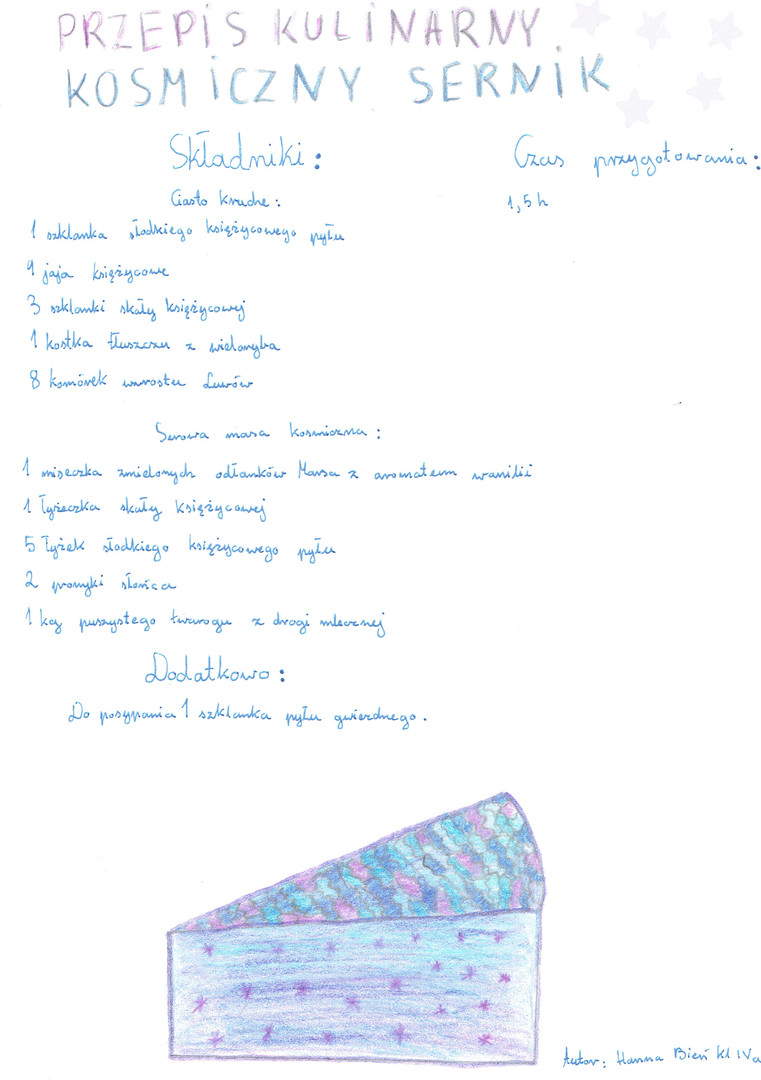 PRZEPIS KULINARNY
KOSMICZNY SERNIK
Składniki:
Czas przygotowania:
Ciasto kruche:
1,5 h
1 szklanka słodkiego księżycowego pyłu
4 jaja księżycowe
3 szklanki skały księżycowej
1 kostka tłuszczu z wieloryba
8 komórek wzrostu Lwów
Serowa masa kosmiczna:
1 miseczka zmielonych odłamków Marsa z aromatem wanilii
1 łyżeczka skały księżycowej
5 łyżek słodkiego księżycowego pyłu
2 promyki słońca
1 kg puszystego twarogu z drogi mlecznej
Dodatkowo:
Do posypania 1 szklanka pyłu gwiezdnego.
Autor: Hanna Bień Kl IVa